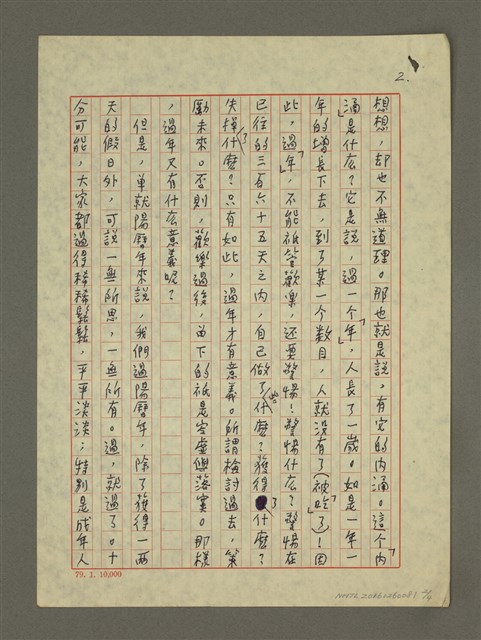 2.
想想,却也不無道理。那也就是說,有它的内涵。這个「内
涵」是什么?它是說,過一个「年」,人長了一歲。如是一年一
年的增長下去,到了某一个数目,人就没有了(被吃了)!因
此,「過年」,不能祇管歡樂,还要警惕!警惕什么?警惕在
已往的三百六十五天之内,自己做了些什麼?獲得了什麼?
失掉了什麼?只有如此,過年才有意義。所謂檢討過去,策
勵未來。否則,歡樂過後,留下的祇是空虛與落寞。那樣
,過年又有什么意義呢?
但是,單就陽曆年來說,我們過陽曆年,除了獲得一两
天的假日外,可說一無所思,一無所有。過,就過了。十
分可能,大家都過得稀稀鬆鬆,平平淡淡;特别是成年人
79. 1. 10,000
NMTL20061260081 2/4